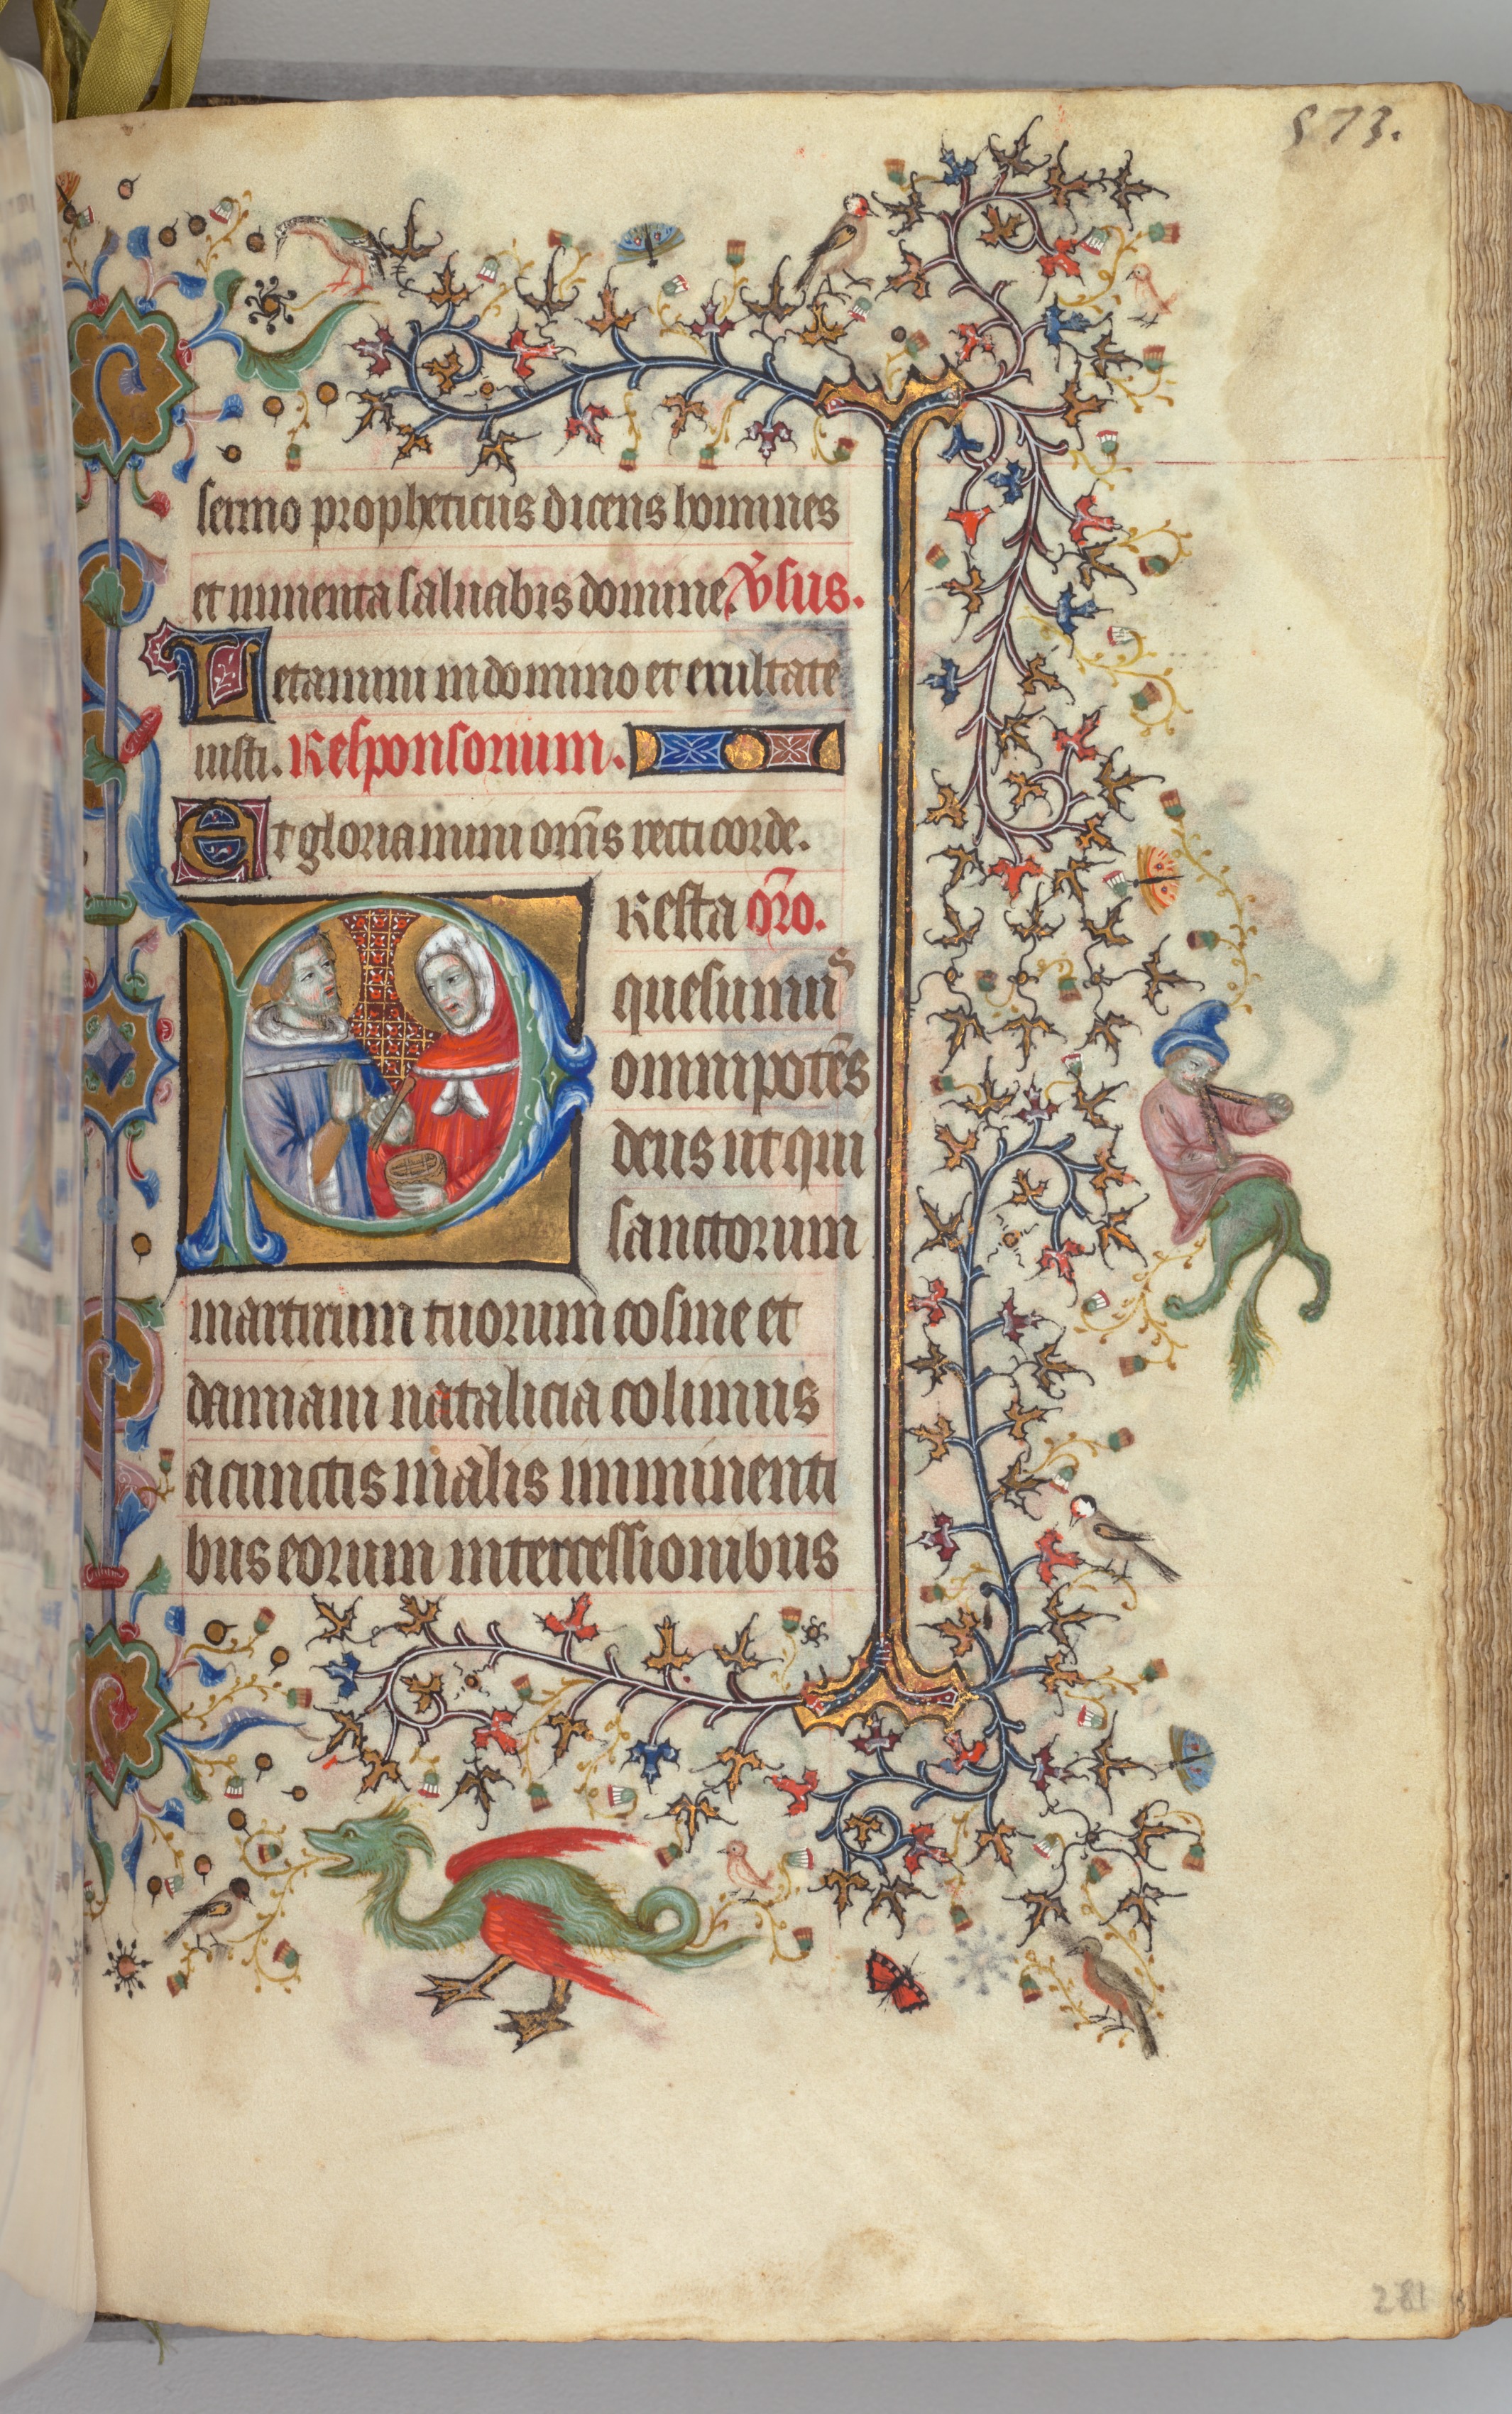 573.
sermo propheticus dicens homines
et iumenta saluabis domine. v̄sus.
Letamini in domino et exultate
iusti. Responsorium.
Et gloriamini om̄s recti corde.
Presta or̄o.
quesumus
omnipotēs
deus ut qui
sanctorum
martirum tuorum cosme et
damiani natalicia colimus
a cunctis malis imminenti
bus eorum intercessionibus
281